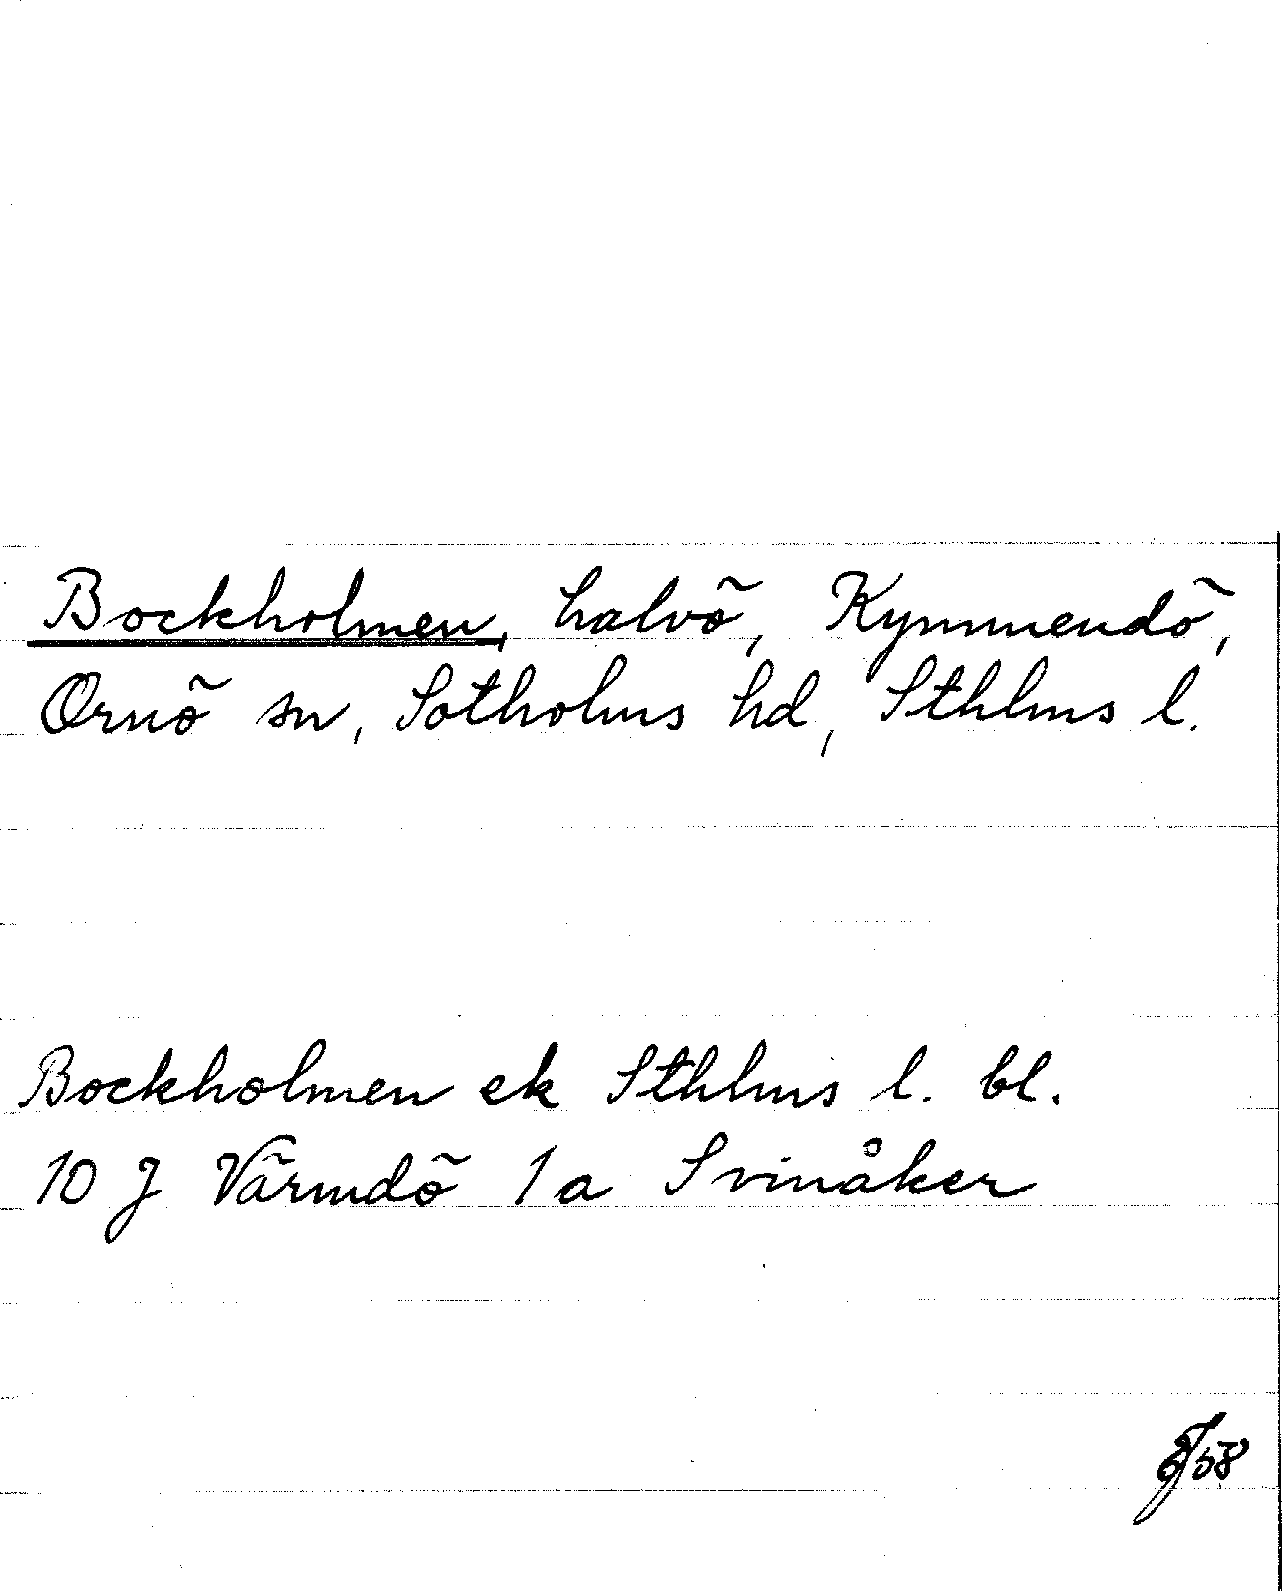 Bockholmen, halvö, Kymmendö,
Ornö sn, Sotholms hd, Sthlms l.
Bockholmen ek Sthlms l. bl.
10 J Värmdö 1a Svinåker
58